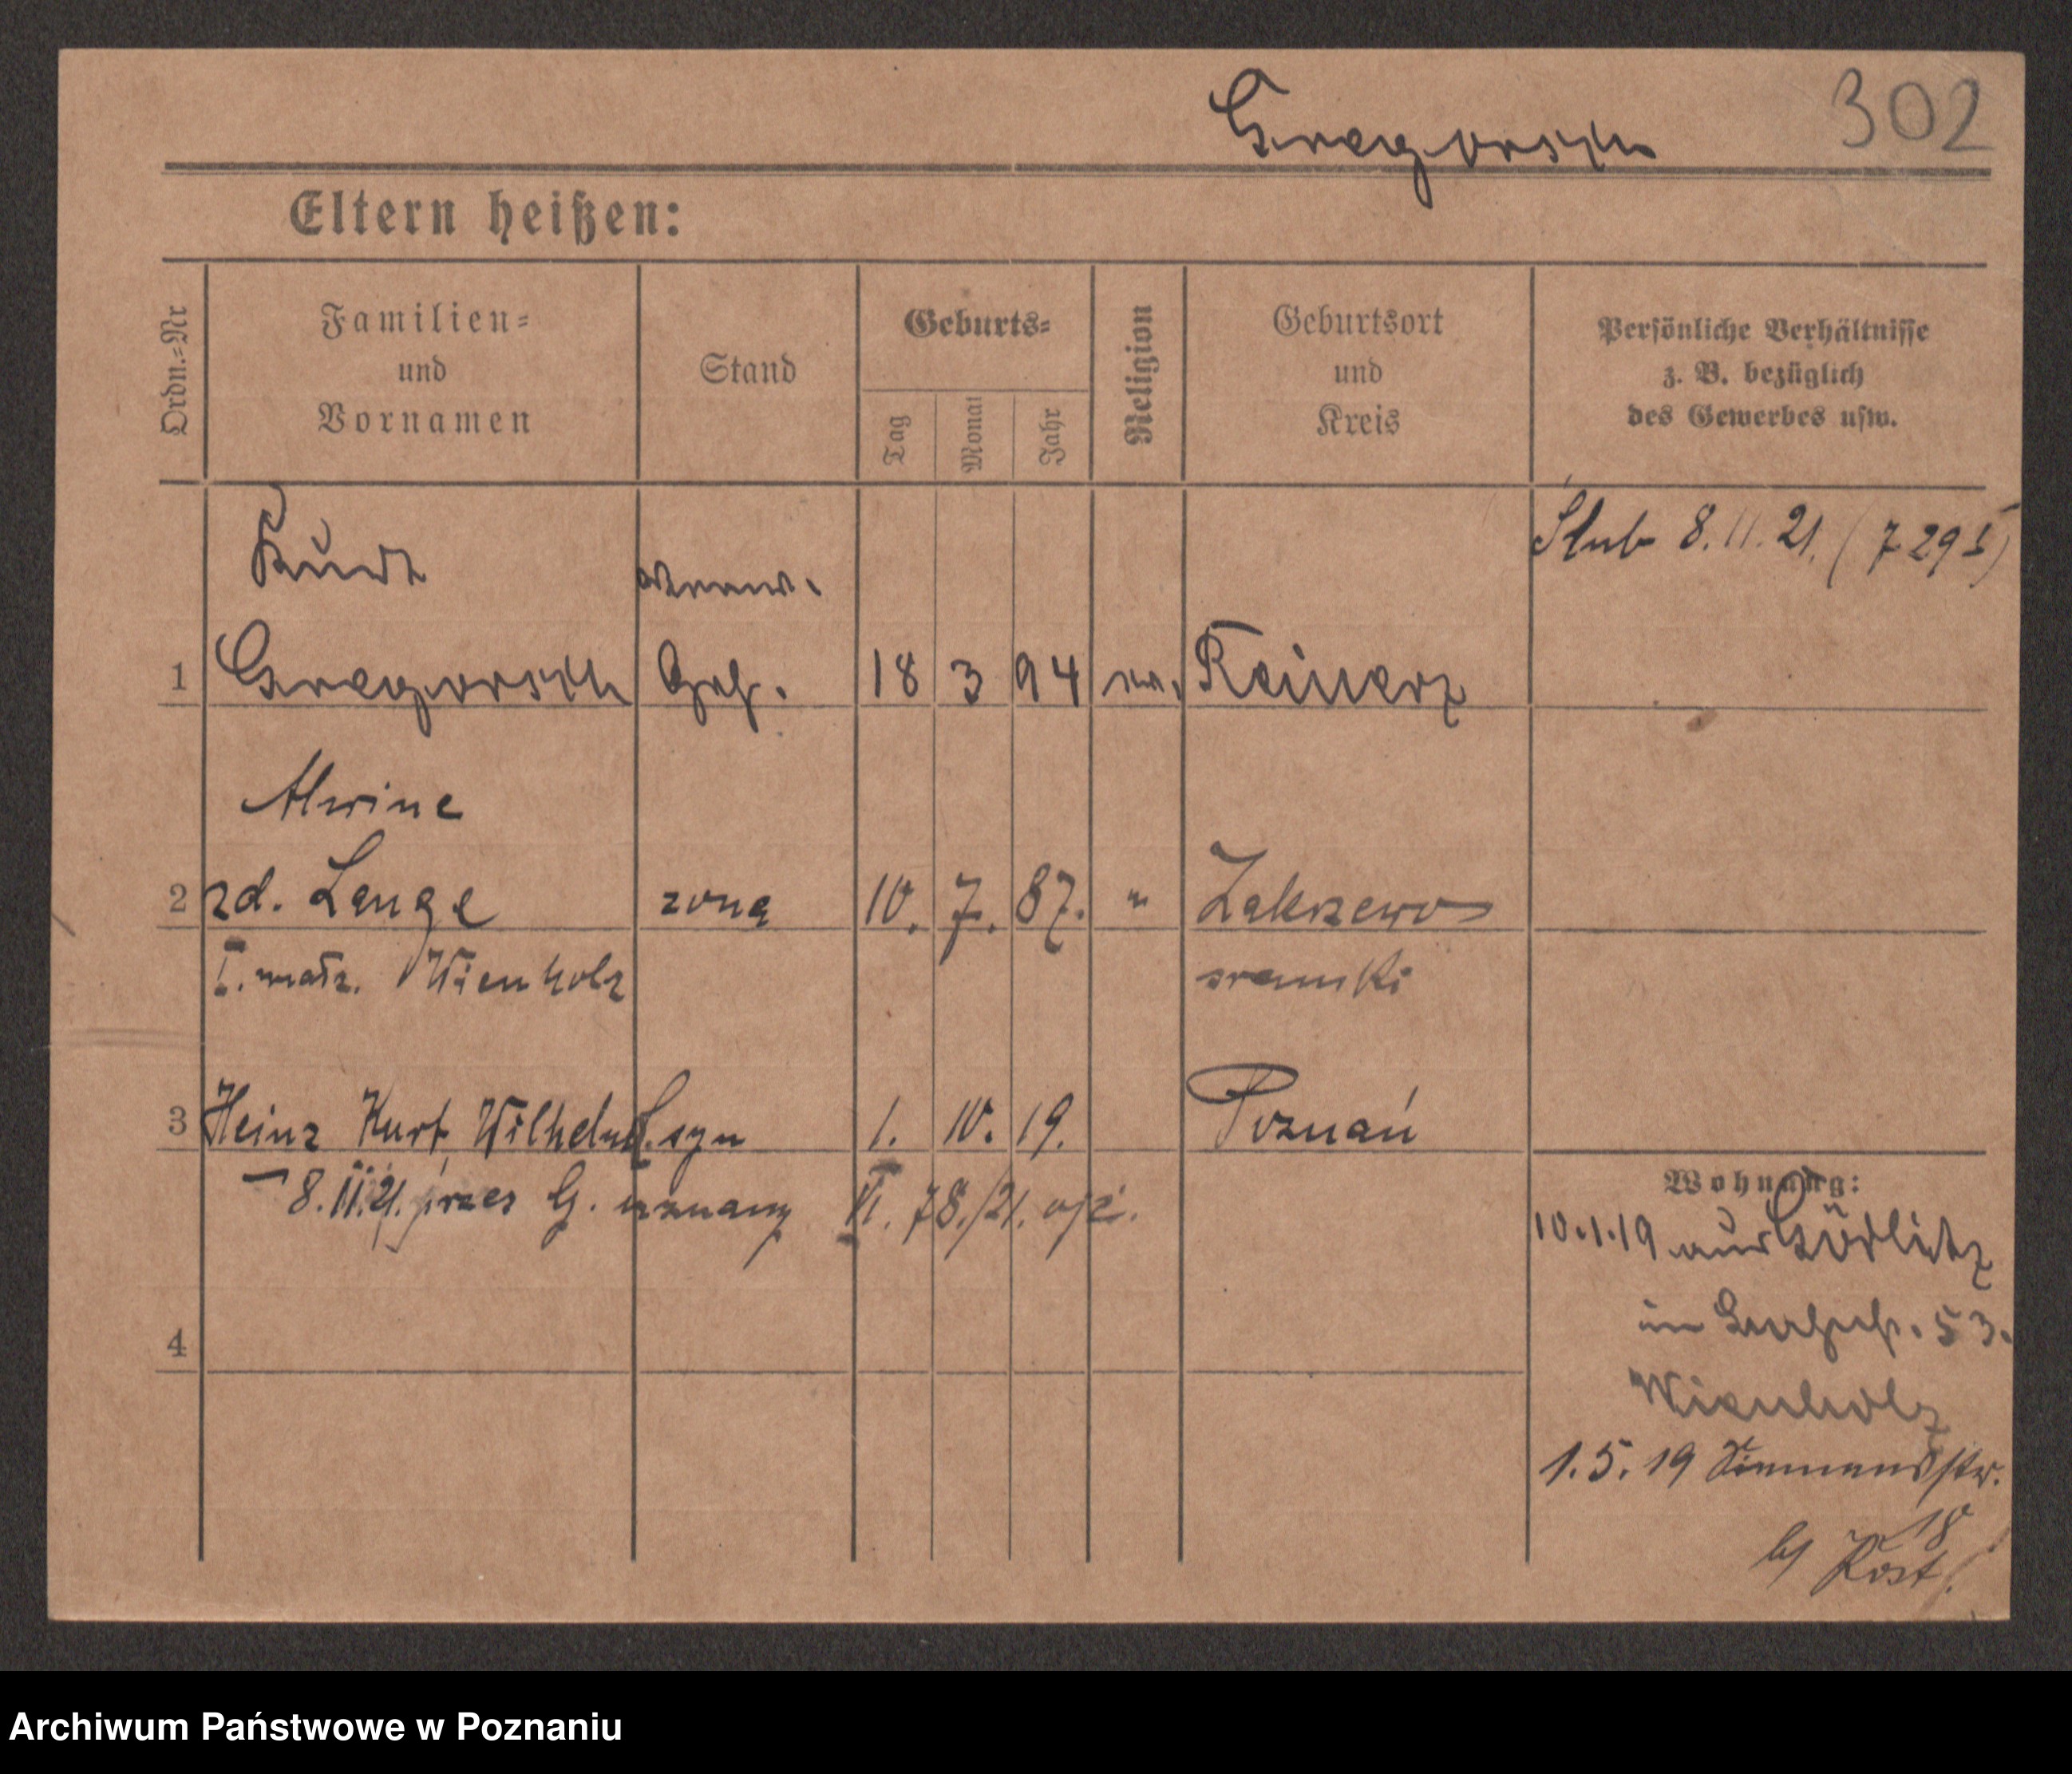 302
Gregorsch
Eltern heißen:
Ordn.=Nr
Familien=
und
Vornamen
Stand
Geburts=
Tag
Monat
Jahr
Religion
Geburtsort
und
Kreis
Persönliche Verhältnisse
z. B. bezüglich
des Gewerbes usw.
Ślub 8.11.21. (7295)
Kurt
1 Gregorsch 18 3 94 Reinerz
Alwine
2 zd. Lange żona 10. 7. 87. " Zakrzewo
I. małż. Wienholz śremski
3 Heinz Kurt Wilhelm L. syn 1. 10. 19. Poznań
8.11.21. przez G. uznany VI. 78./21.
Wohnung:
10.1.19 aus Görlitz
in 53.
Wienholz
1.5.19 Siemensstr.
18
b/ Kost.
4
Archiwum Państwowe w Poznaniu